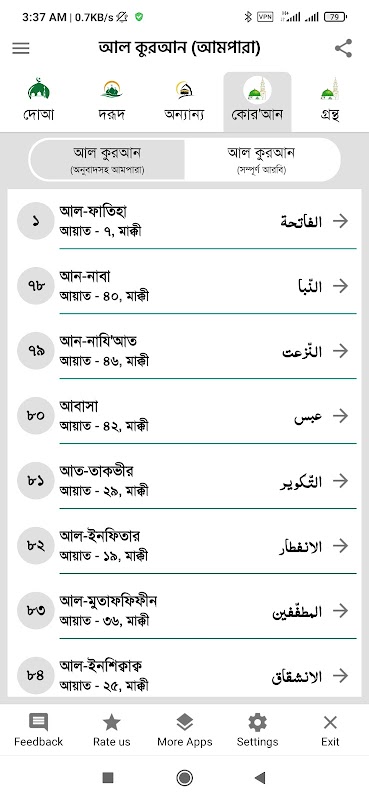 3:37 AM | 0.7KB/s
VPN
79
আল কুরআন (আমপারা)
দোআ
দরূদ
অন্যান্য
কোর'আন
গ্রন্থ
আল কুরআন
(অনুবাদসহ আমপারা)
আল কুরআন
(সম্পূর্ণ আরবি)
১
আল-ফাতিহা
আয়াত - ৭, মাক্কী
الفاتحة
৭৮
আন-নাবা
আয়াত - ৪০, মাক্কী
النّبا
৭৯
আন-নাযি'আত
আয়াত - ৪৬, মাক্কী
النّزعت
৮০
আবাসা
আয়াত - ৪২, মাক্কী
عبس
৮১
আত-তাকভীর
আয়াত - ২৯, মাক্কী
التّكوير
৮২
আল-ইনফিতার
আয়াত - ১৯, মাক্কী
الانفطار
৮৩
আল-মুতাফফিফীন
আয়াত - ৩৬, মাক্কী
المطفّفين
৮৪
আল-ইনশিক্বাক্ব
আয়াত - ২৫, মাক্কী
الانشقاق
Feedback
Rate us
More Apps
Settings
Exit